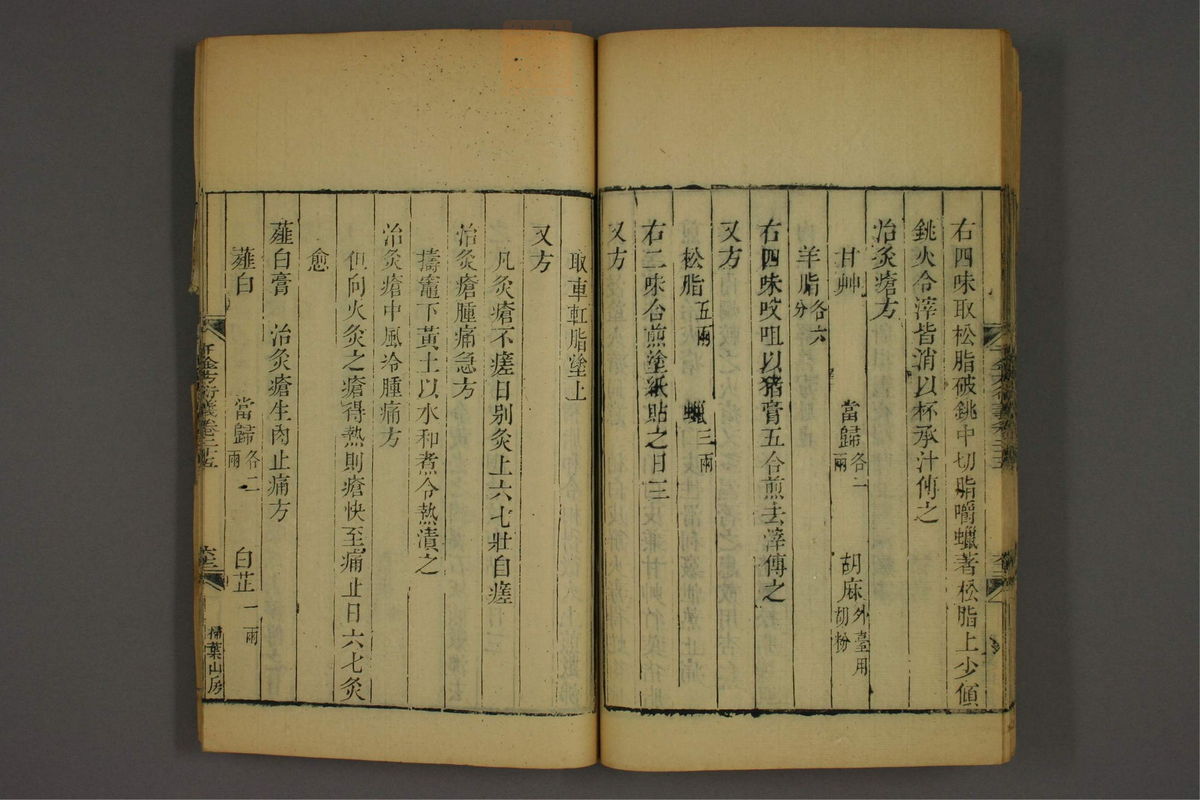 右四味取松脂破銚中切脂嚼蠟著松脂上少傾
銚火令滓皆消以杯承汁傅之
治灸瘡方
甘艸　當歸各二兩　胡麻外臺用胡粉
羊脂各六分
右四味㕮咀以猪膏五合煎去滓傅之
又方
松脂五兩　蠟三兩
右二味合煎塗紙貼之日三
又方
取車䡌脂塗上
又方
凡灸瘡不瘥日别灸上六七壯自瘥
治灸瘡腫痛急方
擣竈下黃土以水和煮令熱漬之
治灸瘡中風冷腫痛方
但向火灸之瘡得熱則瘡快至痛止日六七灸
愈
薤白膏　治灸瘡生肉止痛方
薤白　當歸各二兩　白芷一兩
千金方衍義卷二十五
掃葉山房